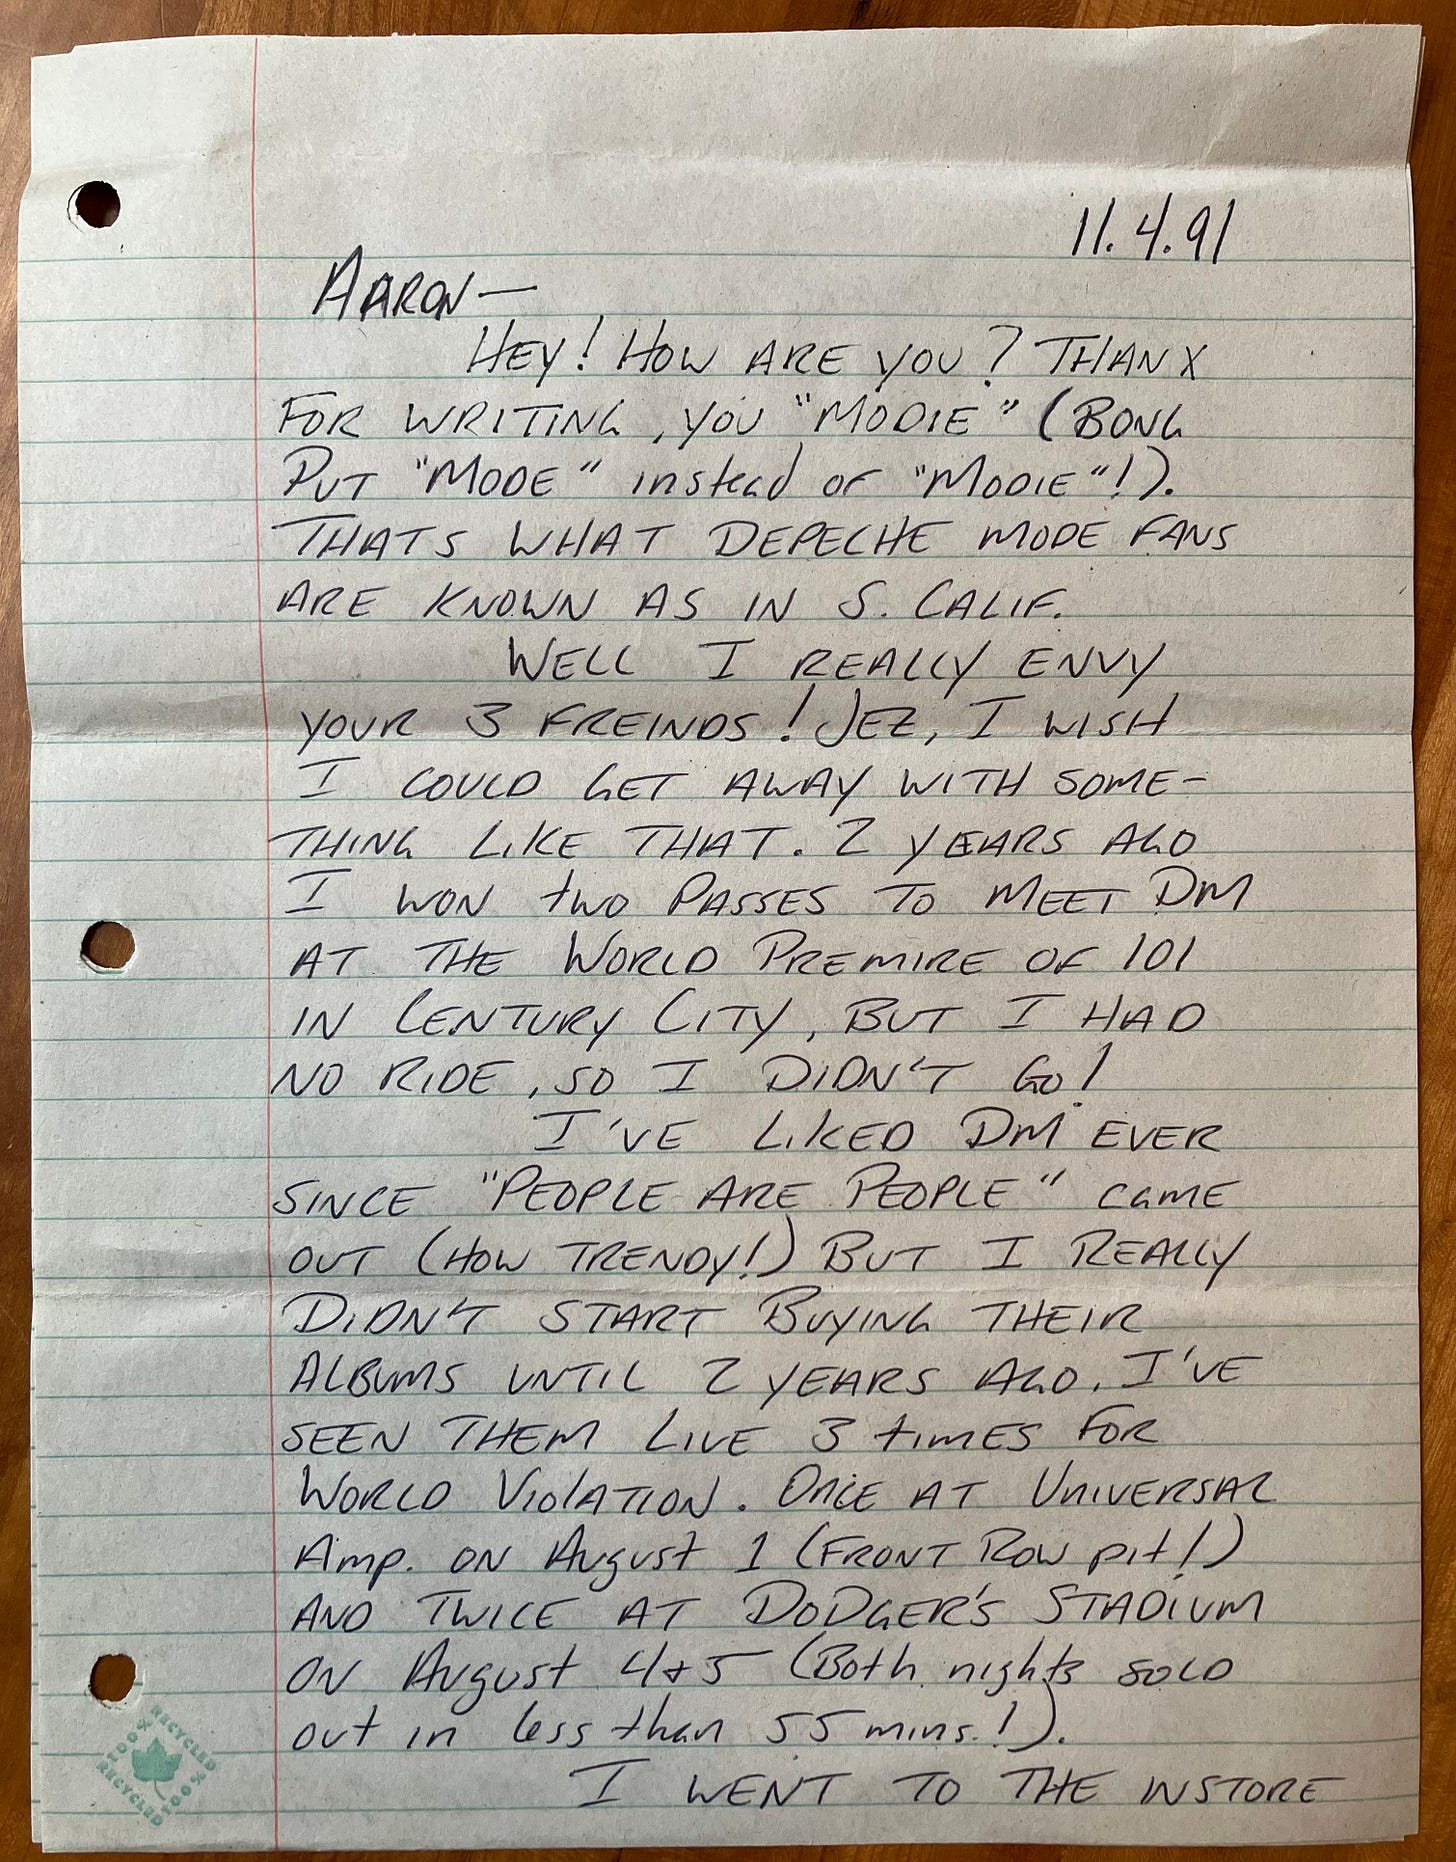 11.4.91
AARON—
HEY! HOW ARE YOU? THANX
FOR WRITING, YOU "MODIE" (BONG
PUT "MODE" instead OF "MODIE"!).
THATS WHAT DEPECHE MODE FANS
ARE KNOWN AS IN S. CALIF.
WELL I REALLY ENVY
YOUR 3 FREINDS! JEZ, I WISH
I COULD GET AWAY WITH SOME-
THING LIKE THAT. 2 YEARS AGO
I WON two PASSES TO MEET DM
AT THE WORLD PREMIRE OF 101
IN CENTURY CITY, BUT I HAD
NO RIDE, SO I DIDN'T GO!
I'VE LIKED DM EVER
SINCE "PEOPLE ARE PEOPLE" CAME
OUT (HOW TRENDY!) BUT I REALLY
DIDN'T START BUYING THEIR
ALBUMS UNTIL 2 YEARS AGO. I'VE
SEEN THEM LIVE 3 tIMES FOR
WORLD VIOLATION. ONCE AT UNIVERSAL
Amp. ON August 1 (FRONT ROW pit!)
AND TWICE AT DODGER'S STADIUM
ON August 4&5 (Both nights SOLD
out in less than 55 mins.!).
I WENT TO THE INSTORE
100% RECYCLED
100% RECYCLED